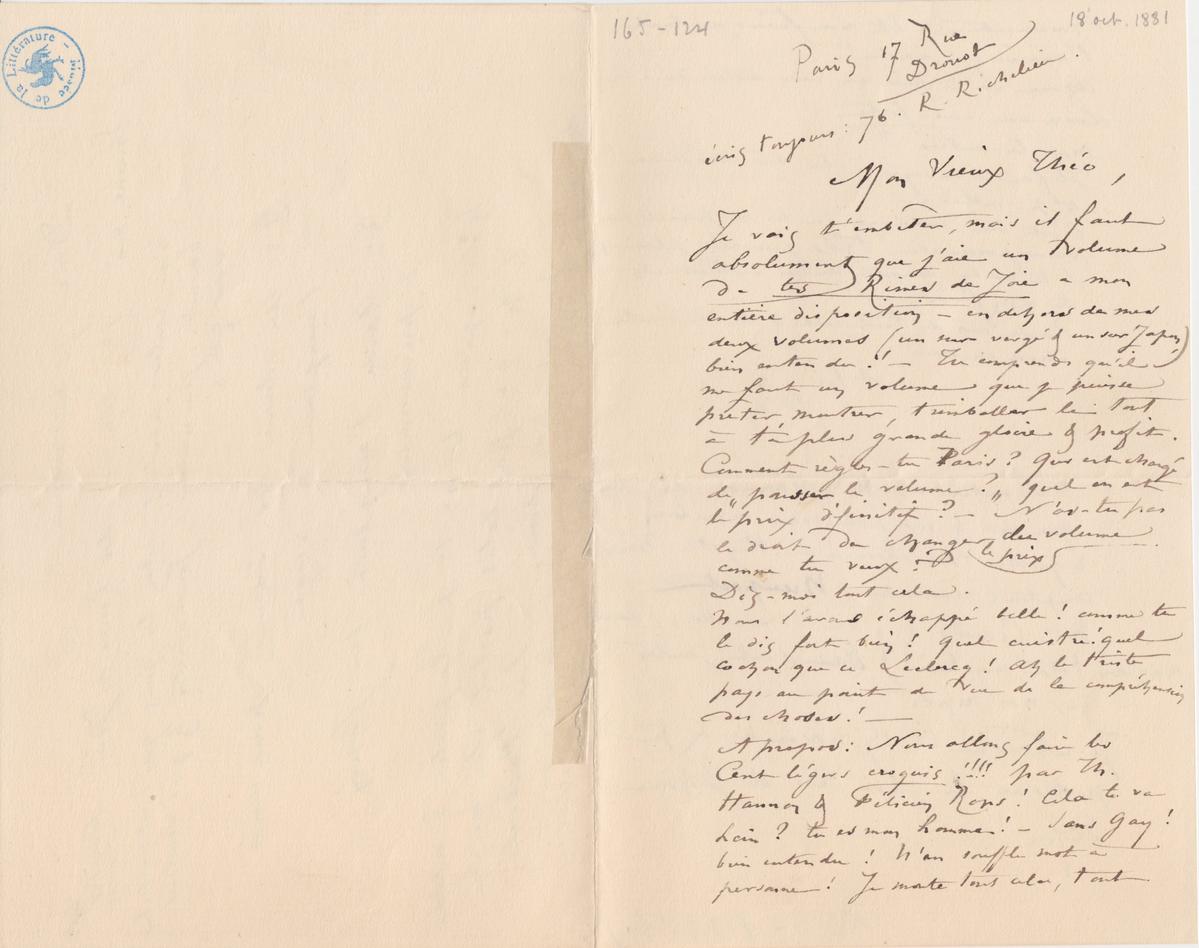 Musée de la Littérature
165-124
18 oct. 1881
Paris 17 Rue
Drouot
écris toujours : 76. R. Richelieu.
Mon Vieux Théo,
Je vais t'embêter, mais il faut
absolument que j'aie un volume
de tes Rimes de Joie a mon
entière disposition – en dehors de mes
deux volumes (un sur vergé & un sur Japon)
bien entendu ! – Tu comprends qu'il
me faut un volume que je puisse
prêter, montrer, trimballer le tout
à ta plus grande gloire & profit.
Comment règles-tu Paris ? Qui est chargé
de „pousser le volume ?„ quel en est
le prix définitif ? – N'as-tu pas
le droit de changer le prix du volume
comme tu veux ?
Dis-moi tout cela.
Nous l'avons échappé belle ! comme tu
le dis fort bien ! Quel cuistre ! quel
cochon que ce Leclercq ! Ah le triste
pays au point de vue de la compréhension
des choses ! –
A propos : Nous allons faire les
Cent légers croquis !!!! par Th.
Hannon & Félicien Rops ! Cela te va
hein ? tu es mon homme ! – Sans Gay !
bien entendu ! N'en souffle mot à
personne ! Je monte tout cela, tout